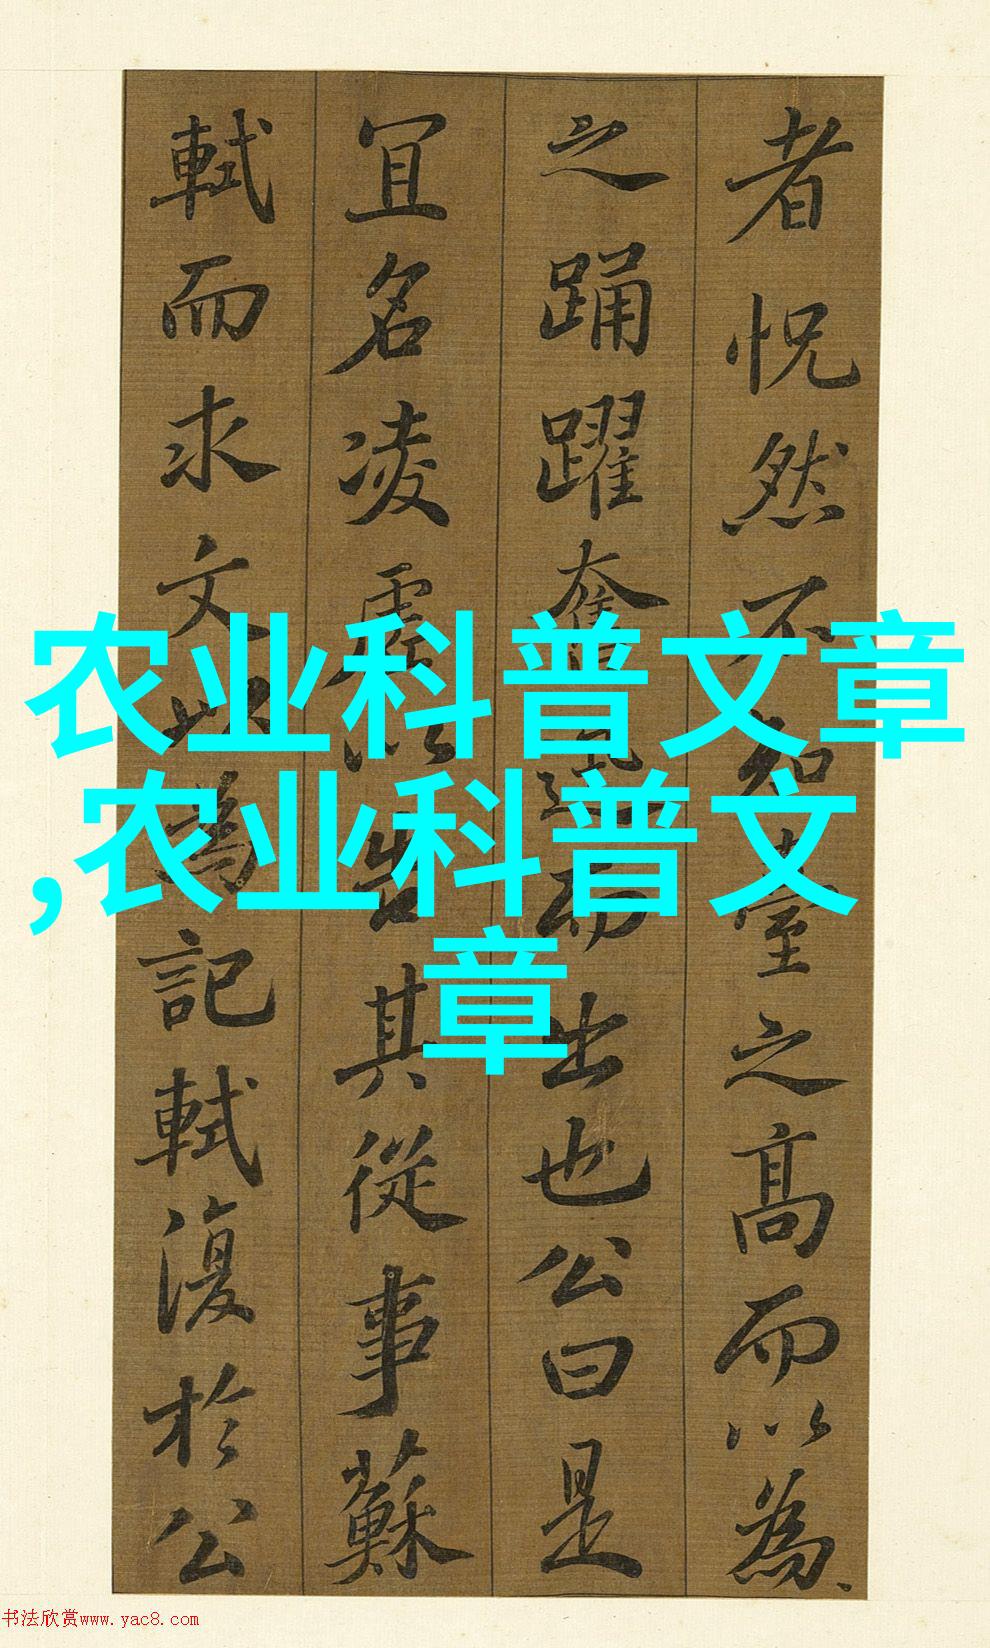 者怳然不知臺之高而以為
之踊躍奮迅而出也公曰是
冝名凌虛以告其從事蘇
軾而求文以為記軾復於公
农业科普文章
,农业科普文
章
书法欣赏www.yac8.com